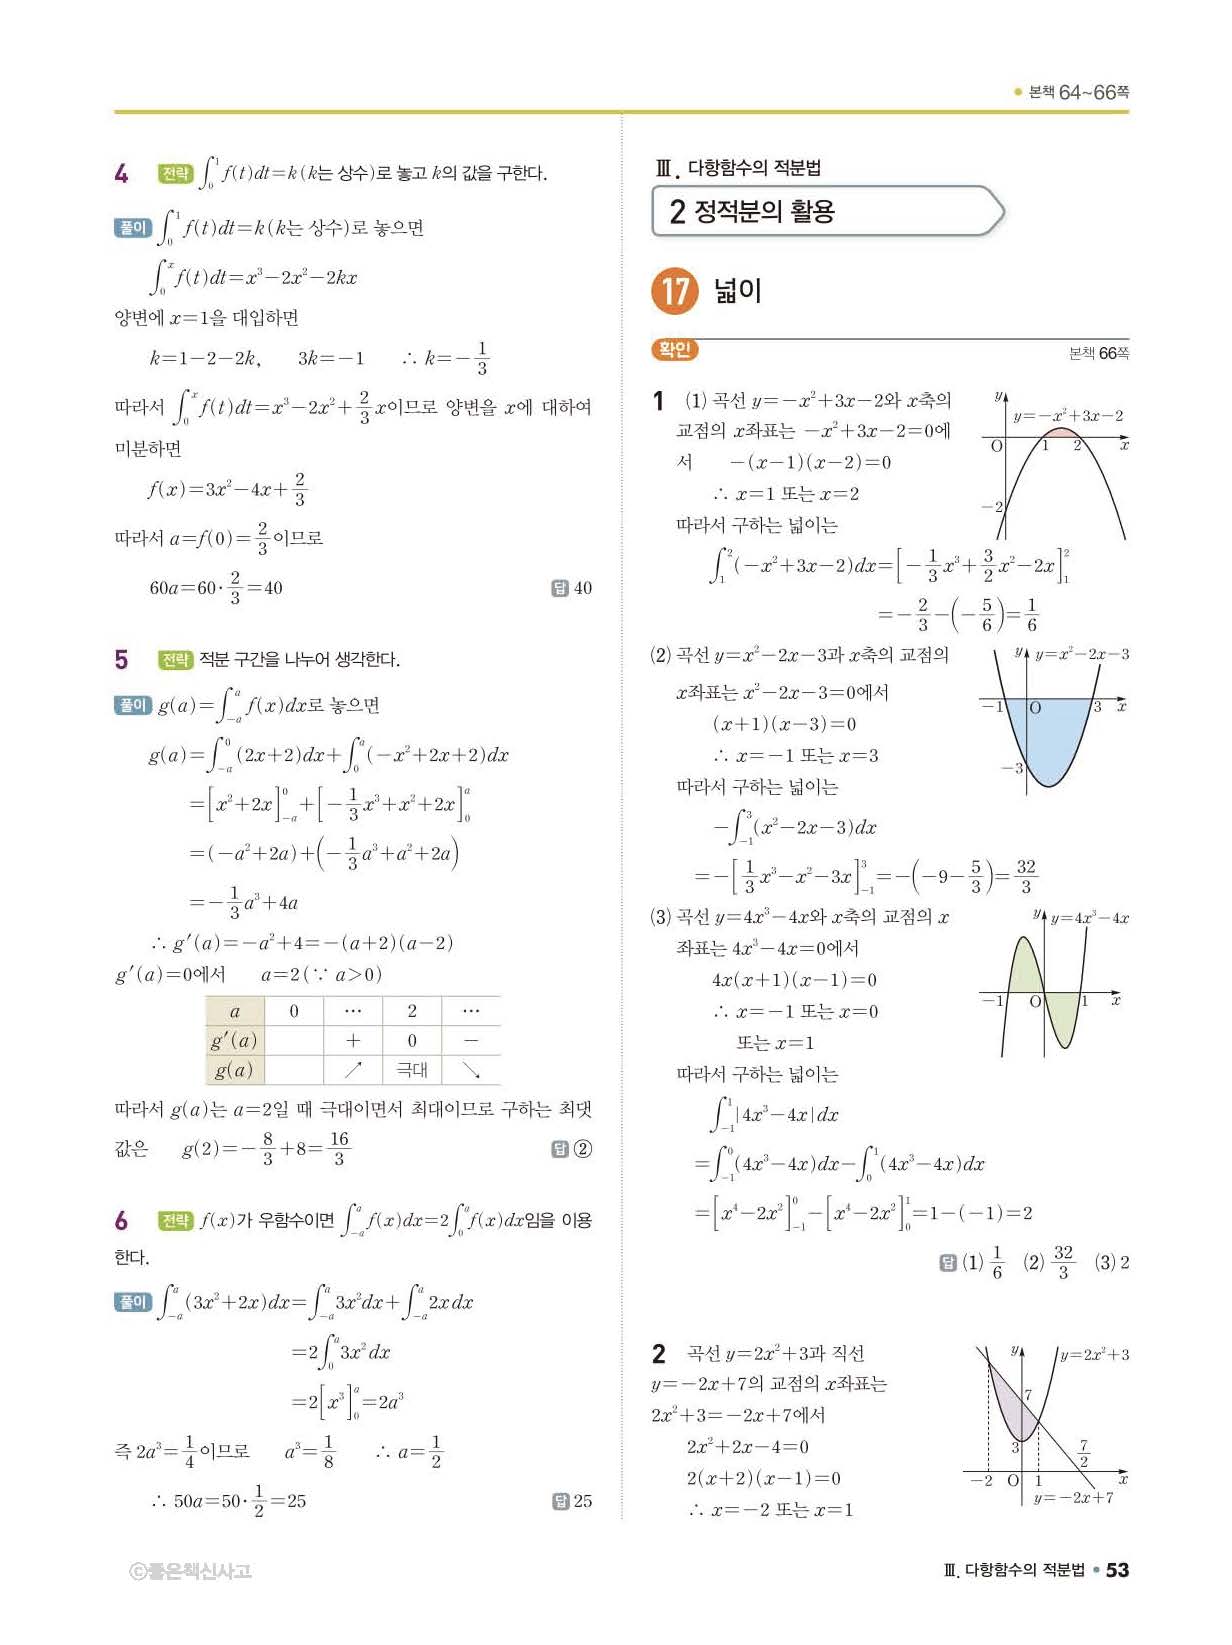 본책 64~66쪽
4 전략 ∫₀¹ f(t)dt=k (k는 상수)로 놓고 k의 값을 구한다.
풀이 ∫₀¹ f(t)dt=k (k는 상수)로 놓으면
∫₀ˣ f(t)dt=x³-2x²-2kx
양변에 x=1을 대입하면
k=1-2-2k, 3k=-1 ∴ k=-1/3
따라서 ∫₀ˣ f(t)dt=x³-2x²+2/3x이므로 양변을 x에 대하여
미분하면
f(x)=3x²-4x+2/3
따라서 a=f(0)=2/3이므로
60a=60·2/3=40 답 40
5 전략 적분 구간을 나누어 생각한다.
풀이 g(a)=∫₋ₐᵃ f(x)dx로 놓으면
g(a)=∫₋ₐ⁰ (2x+2)dx+∫₀ᵃ (-x²+2x+2)dx
=[x²+2x]₋ₐ⁰+[-1/3x³+x²+2x]₀ᵃ
=(-a²+2a)+(-1/3a³+a²+2a)
=-1/3a³+4a
∴ g′(a)=-a²+4=-(a+2)(a-2)
g′(a)=0에서 a=2 (∵ a>0)
a 0 … 2 …
g′(a) + 0 -
g(a) ↗ 극대 ↘
따라서 g(a)는 a=2일 때 극대이면서 최대이므로 구하는 최댓
값은 g(2)=-8/3+8=16/3 답 ②
6 전략 f(x)가 우함수이면 ∫₋ₐᵃ f(x)dx=2∫₀ᵃ f(x)dx임을 이용
한다.
풀이 ∫₋ₐᵃ (3x²+2x)dx=∫₋ₐᵃ 3x²dx+∫₋ₐᵃ 2xdx
=2∫₀ᵃ 3x²dx
=2[x³]₀ᵃ=2a³
즉 2a³=1/4이므로 a³=1/8 ∴ a=1/2
∴ 50a=50·1/2=25 답 25
Ⅲ. 다항함수의 적분법
2 정적분의 활용
17 넓이
확인 본책 66쪽
1 (1) 곡선 y=-x²+3x-2와 x축의
교점의 x좌표는 -x²+3x-2=0에
서 -(x-1)(x-2)=0
∴ x=1 또는 x=2
따라서 구하는 넓이는
y
y=-x²+3x-2
O 1 2 x
-2
∫₁² (-x²+3x-2)dx=[-1/3x³+3/2x²-2x]₁²
=-2/3-(-5/6)=1/6
(2) 곡선 y=x²-2x-3과 x축의 교점의
x좌표는 x²-2x-3=0에서
(x+1)(x-3)=0
∴ x=-1 또는 x=3
따라서 구하는 넓이는
y y=x²-2x-3
-1 O 3 x
-3
-∫₋₁³ (x²-2x-3)dx
=-[1/3x³-x²-3x]₋₁³=-(-9-5/3)=32/3
(3) 곡선 y=4x³-4x와 x축의 교점의 x
좌표는 4x³-4x=0에서
4x(x+1)(x-1)=0
∴ x=-1 또는 x=0
또는 x=1
따라서 구하는 넓이는
y y=4x³-4x
-1 O 1 x
∫₋₁¹ |4x³-4x|dx
=∫₋₁⁰ (4x³-4x)dx-∫₀¹ (4x³-4x)dx
=[x⁴-2x²]₋₁⁰-[x⁴-2x²]₀¹=1-(-1)=2
답 (1) 1/6 (2) 32/3 (3) 2
2 곡선 y=2x²+3과 직선
y=-2x+7의 교점의 x좌표는
2x²+3=-2x+7에서
2x²+2x-4=0
2(x+2)(x-1)=0
∴ x=-2 또는 x=1
y y=2x²+3
7
3 7/2
-2 O 1 x
y=-2x+7
ⓒ좋은책신사고
Ⅲ. 다항함수의 적분법 • 53